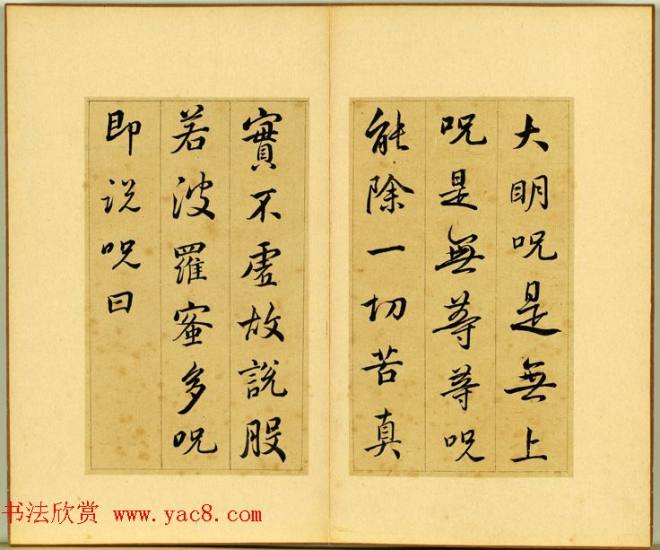 大明呪是無上
呪是無等等呪
能除一切苦真
實不虛故說般
若波羅蜜多呪
即説呪曰
书法欣赏 www.yac8.com